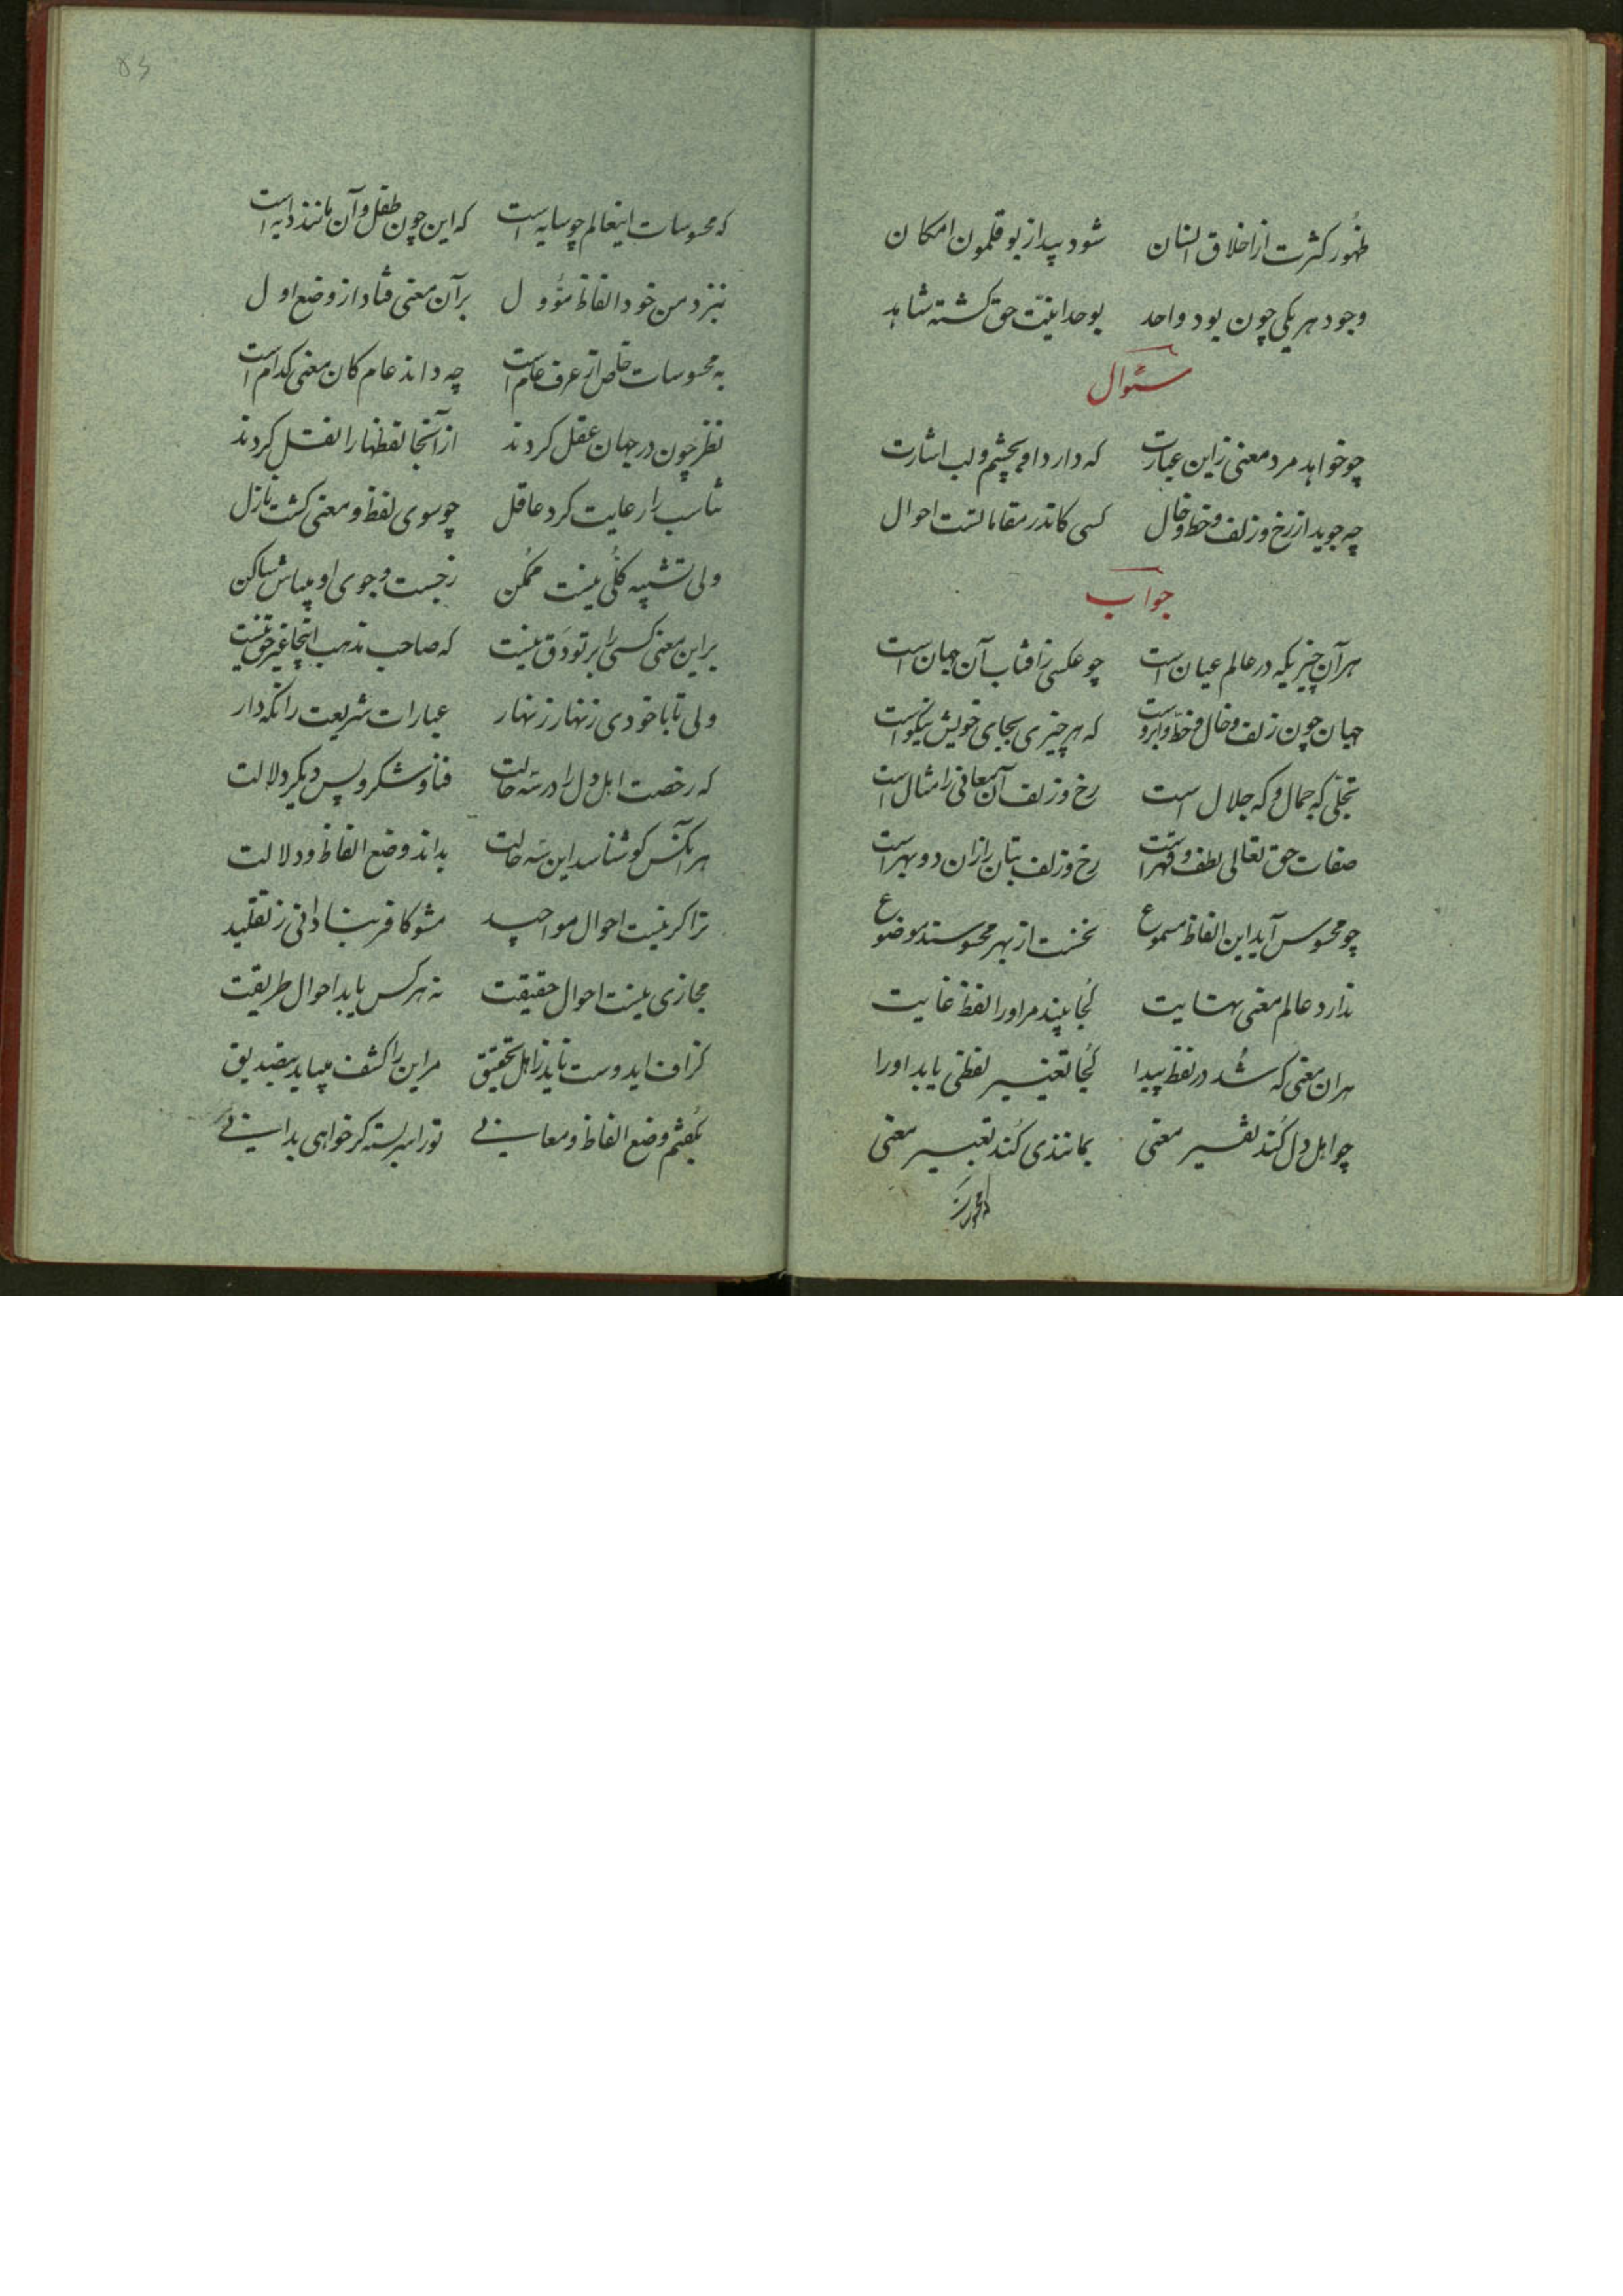 ظهور کثرت از اخلاق انسان شود پیدا ز بوقلمون امکان
وجود هر یکی چون بود واحد بوحدانیّت حق کشته شاهد
سئوال
چو خواهد مرد معنی زاین عبارت که دارد او بچشم و لب اشارت
چه جوید از رخ و زلف و خط و خال کسی کاندر مقاماتست احوال
جواب
هر آن چیزیکه در عالم عیان است چو عکسی ز افتاب آن جهان است
جهان چون زلف و خال و خطّ و ابروست که هر چیزی بجای خویش نیکوست
تجلّی که جمال و که جلال است رخ و زلف آن معانی را مثال است
صفات حق تعالی لطف و قهر است رخ و زلف بتان را زان دو بهر است
چو محسوس آید این الفاظ مسموع نخست از بهر محسوسند موضوع
ندارد عالم معنی نهایت کُجا بیند مر او را لفظ غایت
هر ان معنی که شُد در لفظ پیدا کُجا تعبیر لفظی یابد او را
چو اهل دل کُند تفسیر معنی بمانندی کُند تعبیر معنی
که محسوسات
۵۶
که محسوسات اینعالم چو سایه است که این چون طفل و آن مانند دایه است
بنزد من خود الفاظ مؤول بر آن معنی فتاد از وضع اول
به محسوسات خاص از عرف عام است چه داند عام کان معنی کدام است
نظر چون در جهان عقل کردند از آنجا لفظها را نقل کردند
تناسب را رعایت کرد عاقل چو سوی لفظ و معنی کشت نازل
ولی تشبیه کُلّی نیست ممُکن ز جست و جوی او میباش ساکن
بر این معنی کسی را بر تو دَق نیست که صاحب مذهب اینجا غیر حق نیست
ولی تا با خودی زنهار زنهار عبارات شریعت را نکه دار
که رخصت اهل دل را در سَه حالت فنا و سُکر و پس دیکر دلالت
هر آنکس کو شناسد این سَه حالت بداند وضع الفاظ و دلالت
ترا کر نیست احوال مواجید مشو کافر بنادانی ز تقلید
مجازی نیست احوال حقیقت نه هر کس یابد احوال طریقت
کزاف ایدوست ناید ز اهل تحقیق مر این را کشف میباید بتصدیق
بکُفتم وضع الفاظ و معانی تو را سربسته کر خواهی بدانی